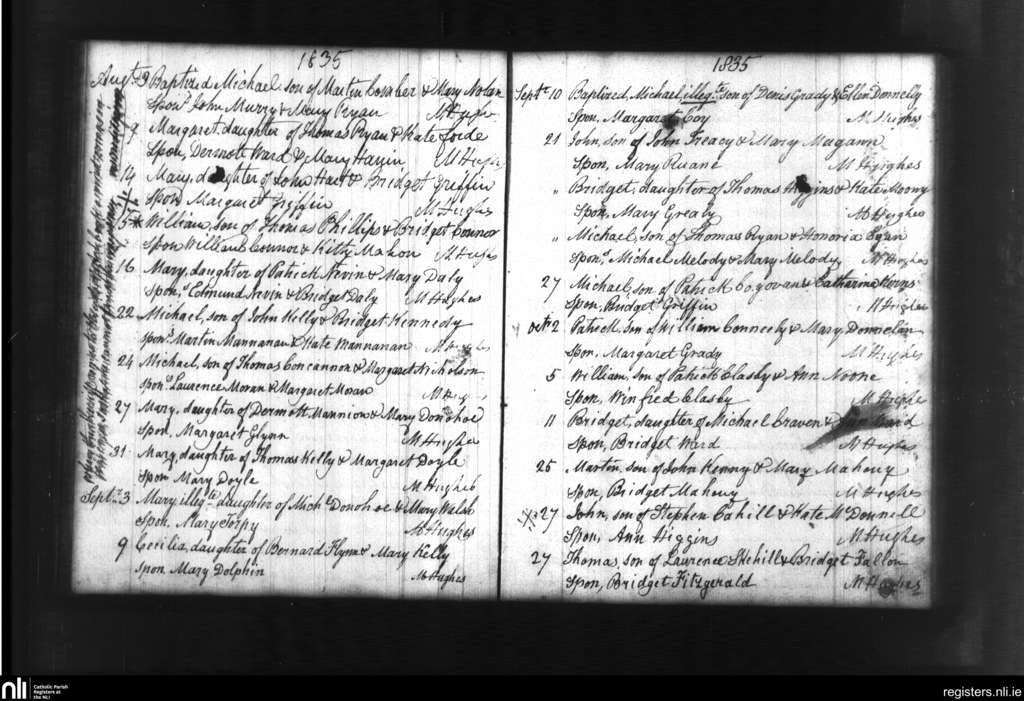 1835
Augt. 9 Baptized Michael son of Martin Comber & Mary Nolan
Spons. John Murry & Mary Ryan M Hughes
9 Margaret, daughter of Thomas Ryan & Kate Forde
Spon, Dermott Ward & Mary M Hughes
14 Mary, daughter of John Hart & Bridget Griffin
Spon Margaret Griffin M Hughes
15 William, son of Thomas Phillips & Bridget Connor
Spon William Connor & Kitty Mahon M Hughes
16 Mary, daughter of Patrick Nevin & Mary Daly
Spons. Edmund Nevin & Bridget Daly M Hughes
22 Michael, son of John Kelly & Bridget Kennedy
Spons. Martin Mannanan & Kate Mannanan M Hughes
24 Michael, son of Thomas Concannon & Margaret Nicholson
Spons. Laurence Moran & Margaret Moran M Hughes
27 Mary, daughter of Dermott Mannion & Mary Donohoe
Spon, Margaret Glynn M Hughes
31 Mary, daughter of Thomas Kelly & Margaret Doyle
Spon Mary Doyle M Hughes
Septr. 3 Mary illegte. daughter of Michl. Donohoe & Mary Welsh
Spon, Mary Torpy M Hughes
9 Cecilia, daughter of Bernard Flynn & Mary Kelly
Spon Mary Dolphin M Hughes
1835
Septr. 10 Baptized, Michael, illegte. son of Denis Grady & Ellen Donnelly
Spon, Margaret Coy M Hughes
21 John, son of John Treacy & Mary Magann
Spon, Mary Ruane M Hughes
" Bridget, daughter of Thomas Higgins & Kate Moony
Spon, Mary Grealy M Hughes
" Michael, son of Thomas Ryan & Honoria Egan
Spons. Michael Melody & Mary Melody M Hughes
27 Michael, son of Patrick Cogowan & Catharine Kerns
Spon, Bridget Griffin M Hughes
Octr. 2 Patrick, son of William Conneely & Mary Donnelan
Spon, Margaret Grady M Hughes
5 William, son of Patrick Clasby & Ann Noone
Spon, Winfred Clasby M Hughes
11 Bridget, daughter of Michael Craven & Ward
Spon, Bridget Ward M Hughes
25 Martin, son of John Kenny & Mary Maheny
Spon, Bridget Maheny M Hughes
27 John, son of Stephen Cahill & Kate McDonnell
Spon, Ann Higgins M Hughes
27 Thomas, son of Laurence Skehill & Bridget Fallon
Spon, Bridget Fitzgerald M Hughes
nli Catholic Parish
Registers at
the NLI
registers.nli.ie